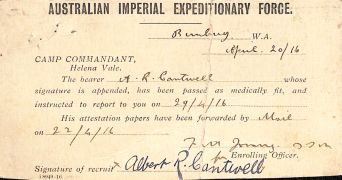 AUSTRALIAN IMPERIAL EXPEDITIONARY FORCE.
Bunbury W. A.
April 20/16
CAMP COMMANDANT,
Helena Vale.
The bearer A. R. Cantwell whose
signature is appended, has been passed as medically fit, and
instructed to report to you on 29/4/16
His attestation papers have been forwarded by Mail
on 22/4/16
for Enrolling Officer.
Signature of recruit Albert R. Cantwell